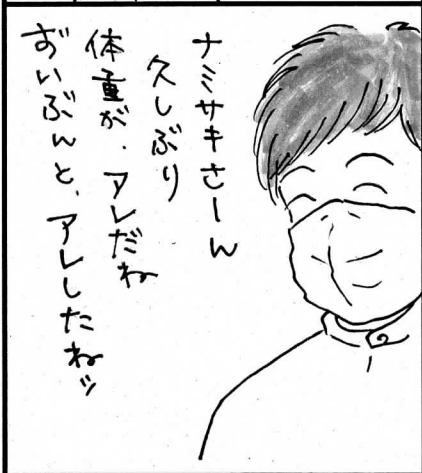 ナミサキさーん
久しぶり
体重が、アレだね
ずいぶんと、アレしたねッ